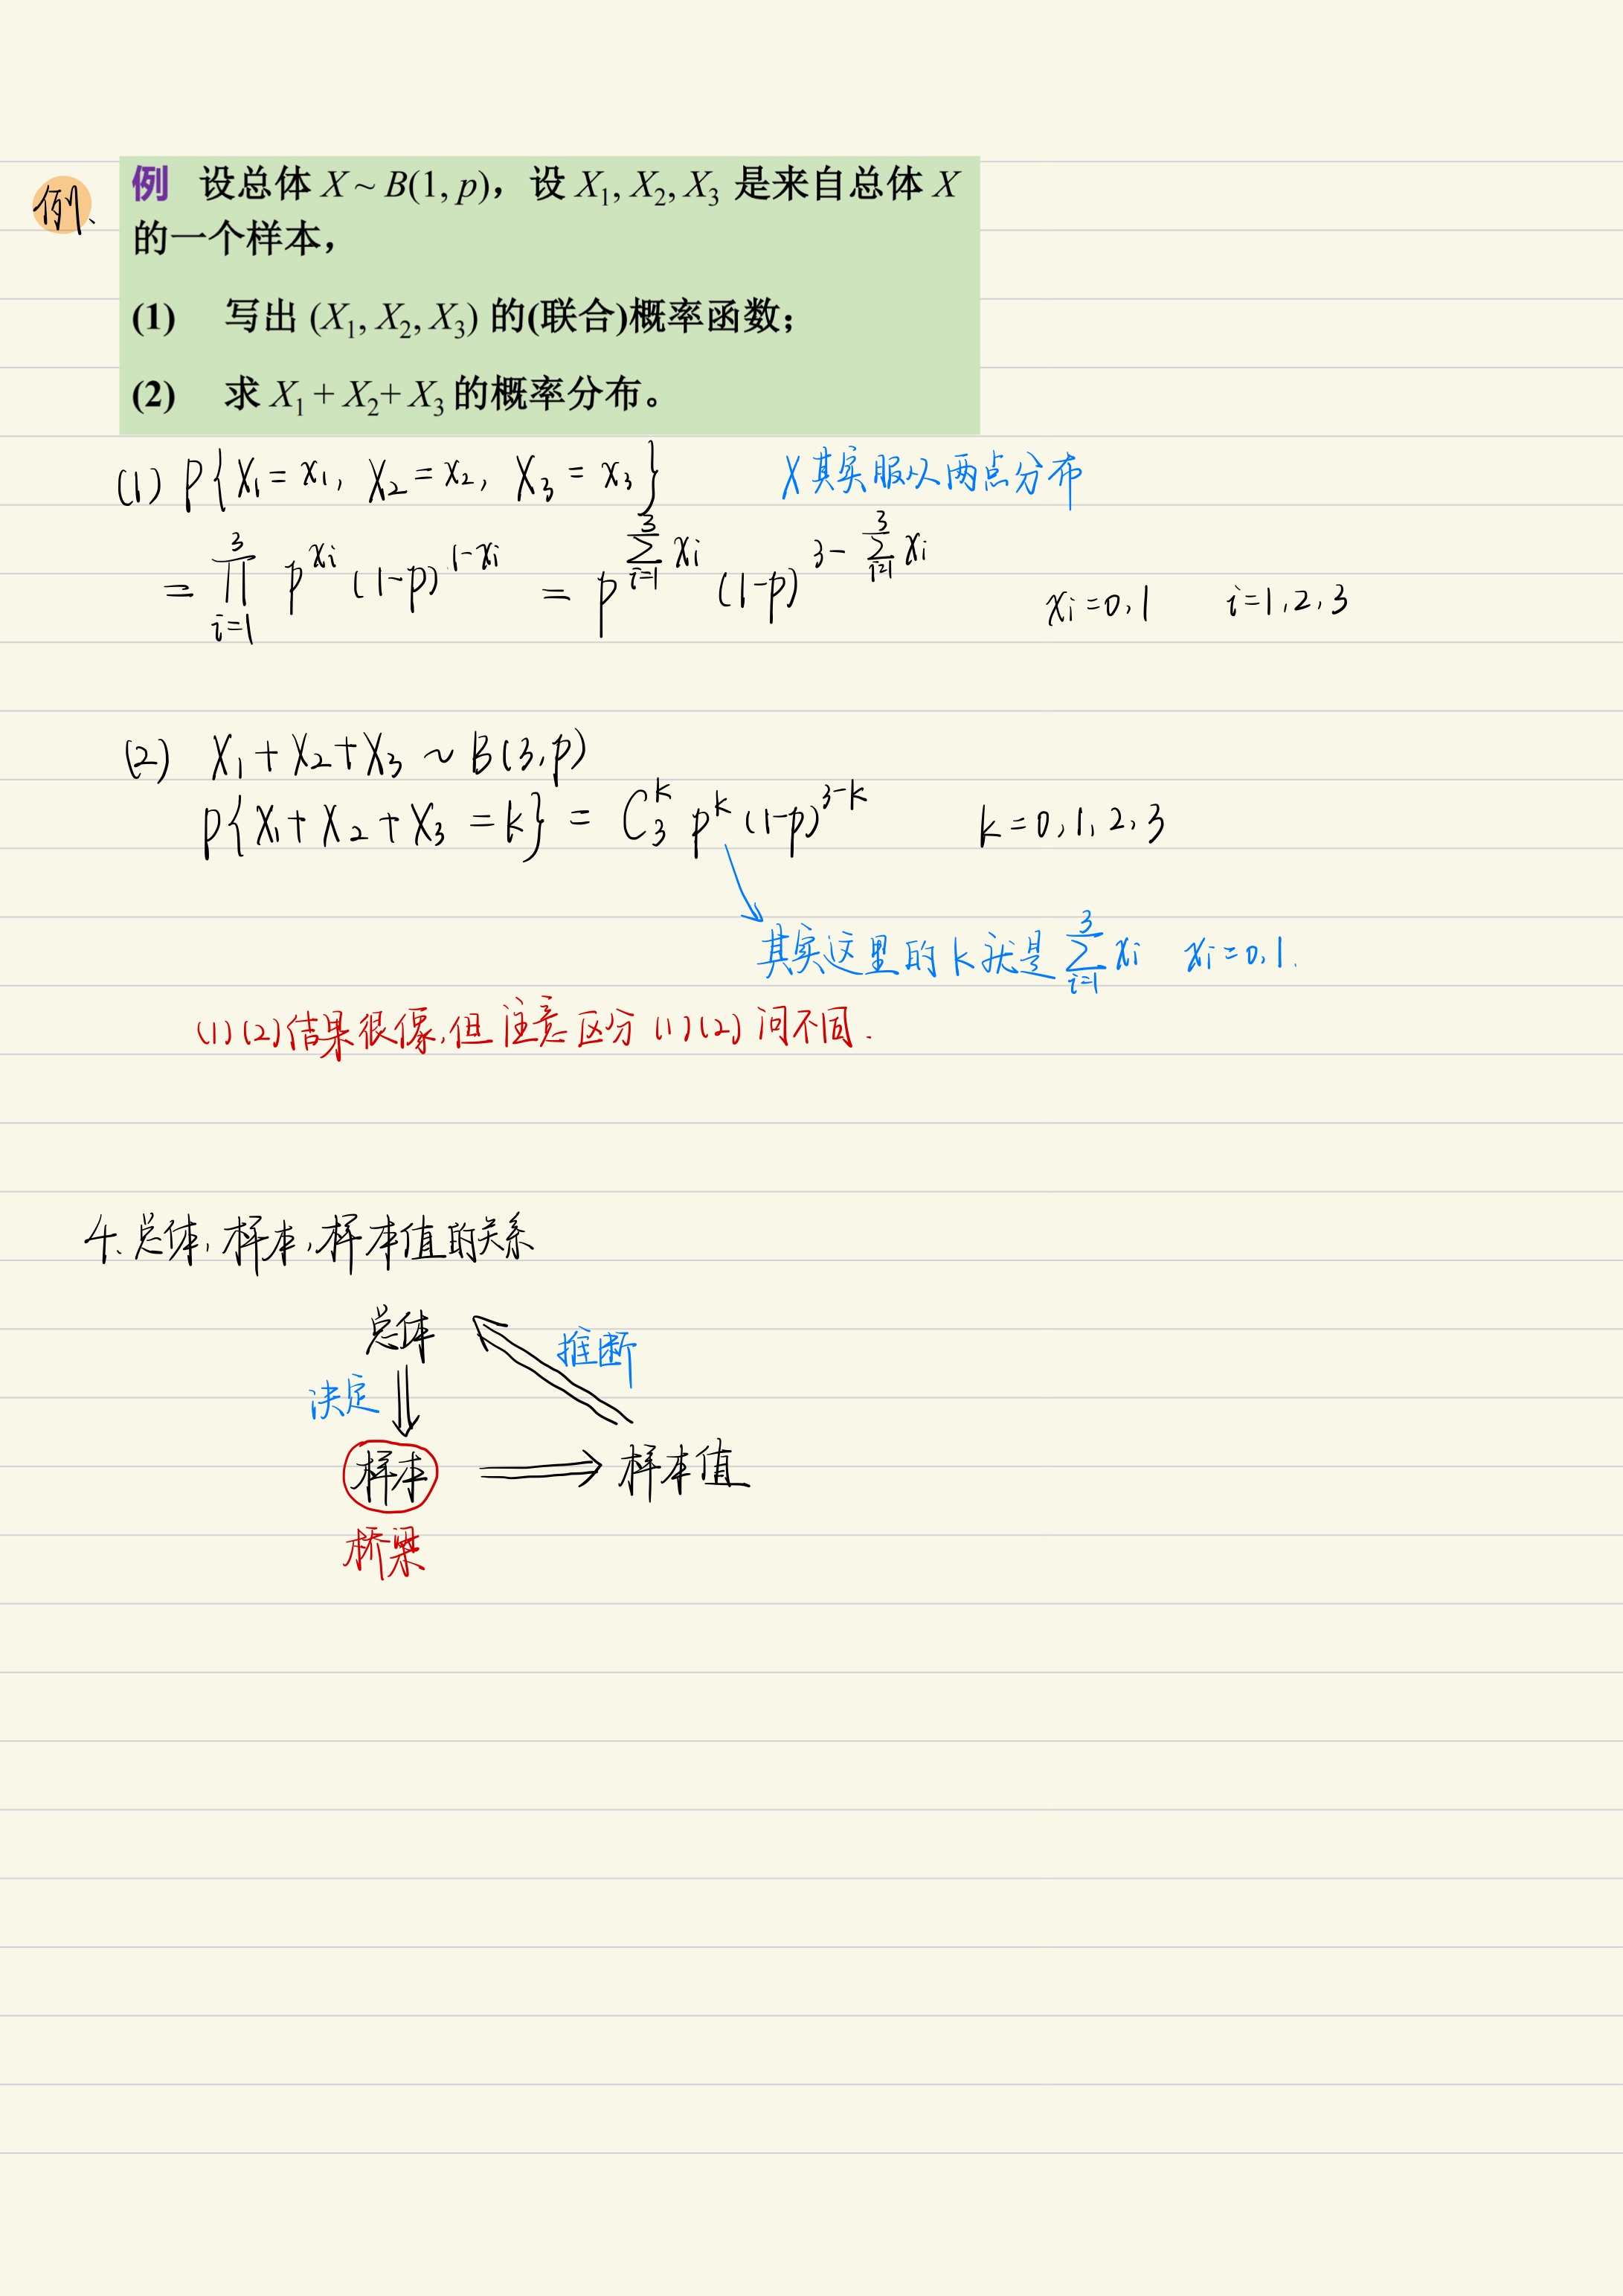 例、
例 设总体 X ~ B(1, p)，设 X₁, X₂, X₃ 是来自总体 X
的一个样本，
(1) 写出 (X₁, X₂, X₃) 的(联合)概率函数；
(2) 求 X₁ + X₂+ X₃ 的概率分布。
(1) P{X₁ = x₁, X₂ = x₂, X₃ = x₃} X其实服从两点分布
= ∏_{i=1}^{3} p^{xᵢ} (1-p)^{1-xᵢ} = p^{∑_{i=1}^{3} xᵢ} (1-p)^{3-∑_{i=1}^{3} xᵢ} xᵢ=0,1 i=1,2,3
(2) X₁+X₂+X₃ ~ B(3,p)
P{X₁+X₂+X₃=k} = C₃ᵏ pᵏ (1-p)^{3-k} k=0,1,2,3
其实这里的k就是 ∑_{i=1}^{3} xᵢ xᵢ=0,1.
(1)(2)结果很像,但注意区分(1)(2)问不同.
4、总体,样本,样本值的关系
总体
推断
决定
样本 ⟹ 样本值
桥梁